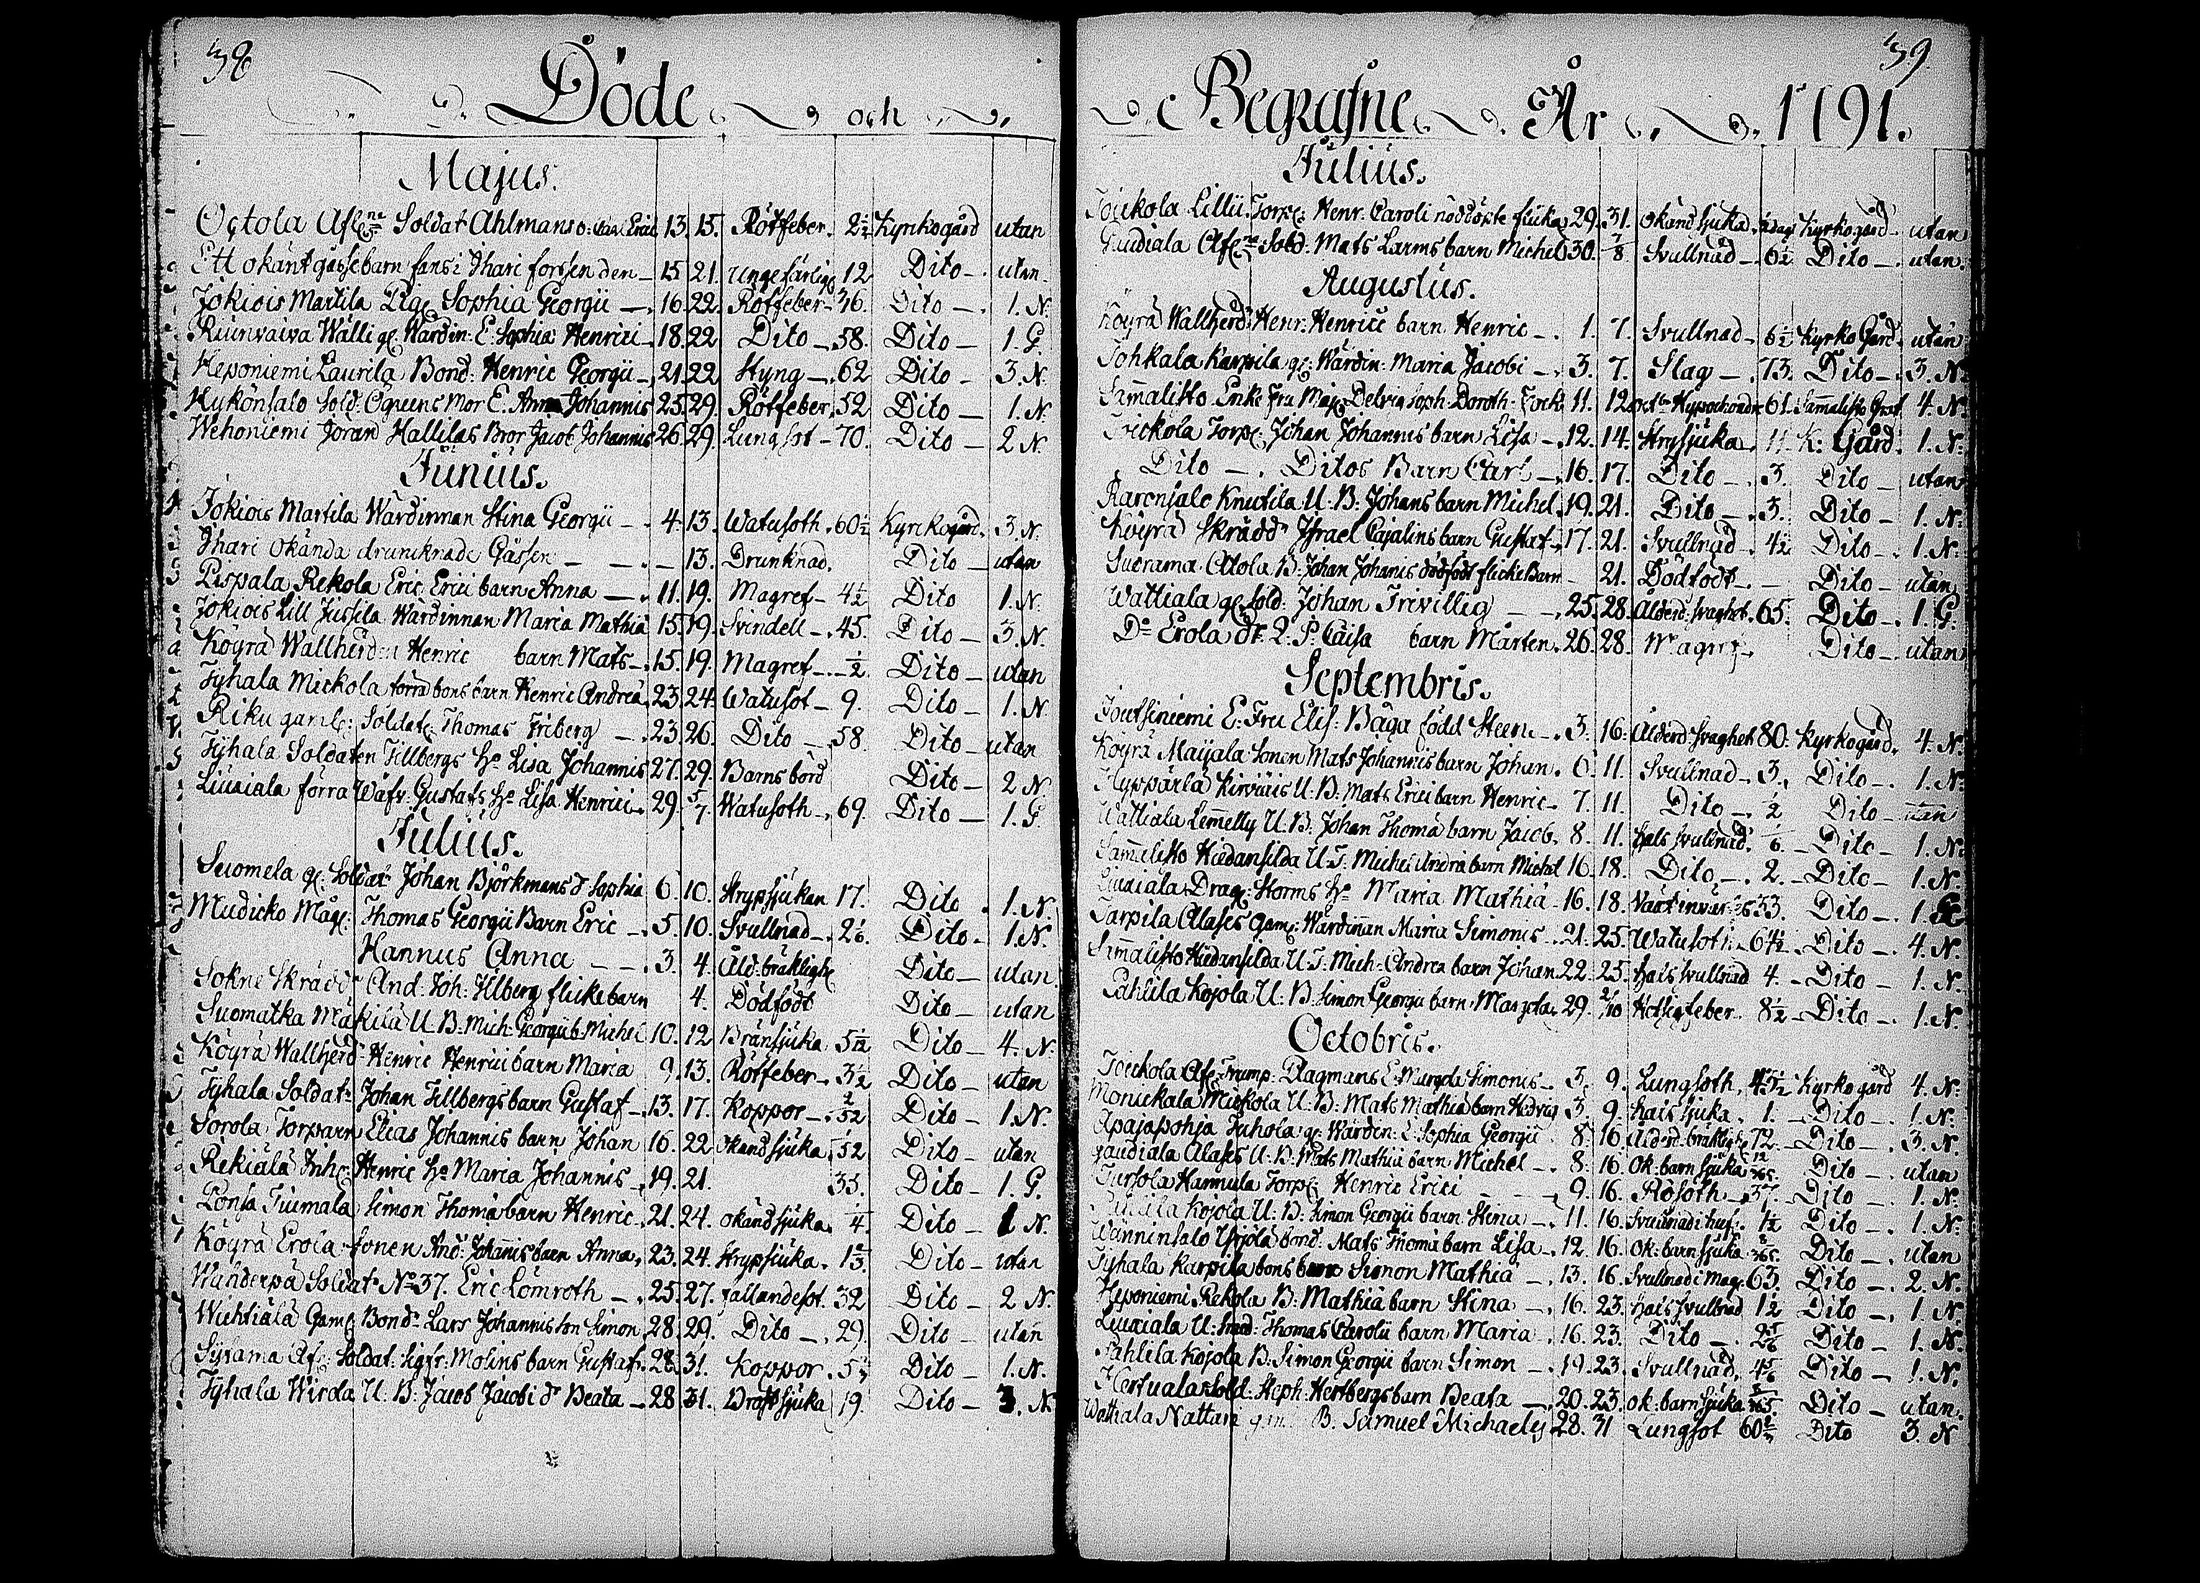 38
Döde och
Majus.
Octola Afsk:ne Soldat Ahlmans o: Carl Eric 13. 15. Rötfeber. 2½ Kyrkogård utan
Ett okänt gåssebarn fans i Ihari forssen den 15 21. ungefärlig 12 Dito utan
Jokiois Martila Pig: Sophia Georgii 16. 22. Rötfeber 36. Dito 1. N.
Ruunvaiva Wälli gl: Wärdin: E. Sophia Henrici 18. 22 Dito 58. Dito 1. G.
Heponiemi Laurila Bond: Henric Georgii 21. 22 Styng 62 Dito 3. N.
Kykönsalo Sold: Ogreens Mor E. Anna Johannis 25. 29. Rötfeber 52 Dito 1. N.
Wehoniemi Joran Hallilas Bror Jacob Johannis 26. 29. Lungsot 70. Dito 2 N.
Junius.
Jokiois Martila Wärdinnan Stina Georgii 4. 13. Watusoth 60½ Kyrkogård. 3. N.
Ihari Okända drunknade Gåssen 13. Drunknad. Dito utan
Pispala Rekola Eric Erici barn Anna 11. 19. Magref 4½ Dito 1. N.
Jokiois Lill Jussila Wärdinnan Maria Mathiæ 15. 19. Svindell 45. Dito 3. N.
Köyrä Wallherden Henric barn Mats 15. 19. Magref ½ Dito utan
Tyhala Mickola förra bons barn Henric Andreæ 23. 24. Watusot 9. Dito 1. N.
Riku gamle: Soldat: Thomas Friberg 23. 26. Dito 58. Dito utan
Tyhala Soldaten Tillbergs H:o Lisa Johannis 27. 29. Barnsbörd Dito 2 N.
Liuxiala förra Wäfv. Gustafs H:o Lisa Henrici 29. 5/7. Watusoth 69. Dito 1. G.
Julius.
Suomela gl: Soldat Johan Björkmans d Sophia 6. 10. Strypsjukan 17. Dito 1. N.
Mudicko Måg: Thomas Georgii Barn Eric 5. 10. Svullnad 2⅙. Dito 1. N.
Hannus Anna 3. 4. Åld: bräklighe Dito utan
Sokne Skrädd: And: Joh: Tilberg flickebarn 4. Dödfödt Dito utan
Suomatka Mäkilä U. B: Mich: Georgii b. Michel 10. 12 Bränsjuka. Dito 4. N.
Köyrä Wallherd Henric Henrici barn Maria 9. 13. Rötfeber 3½ Dito utan
Tyhala Soldat: Johan Tillbergs barn Gustaf 13. 17. Koppor 2/52 Dito 1. N.
Sorola Torparn Elias Johannis barn Johan 16. 22 Okänd sjuka 52 Dito utan
Rekiälä Inh: Henric H:o Maria Johannis 19. 21. 33. Dito 1. G.
Ponsa Tiumala Simon Thomæ barn Henric 21. 24. okänd sjuka ¼ Dito 1 N.
Köyrä Erola Sonen And: Johannis barn Anna 23. 24. Strypsjuka. Dito utan
Wänderpä Soldat N:o 37. Eric Lömroth 25. 27. fallandesot. 32 Dito 2 N.
Wichtiälä Gaml: Bond: Lars Johannis son Simon 28. 29. Dito 29. Dito utan
Syrama Af: Soldat Sigfr: Molins barn Gustaf 28. 31. Koppor Dito 1. N.
Tyhala Wirda U. B: Jacob Jacobi d:r Beata 28. 31. Bröstsjuka 19. Dito 3. N.
39.
Begrafne År 1791.
Julius.
Toickola Lillu. Torp: Henr. Caroli nöddöpte flicka 29. 31. okänd sjuka. dag: Kyrkogård utan
Gaudiala Afsk:ne Sold: Mats Larms barn Michel 30. 7/8 Svullnad 6½ Dito utan.
Augustus.
Köyrä Wallherd: Henr: Henrici barn Henric 1. 7. Svullnad 6½ Kyrko Gård utan
Tohkala Karpila gl: Wärdin: Maria Jacobi 3. 7. Slag 73. Dito 3. N.
Sam̅alisto Enke Fru Maj: Delvig Soph: Doroth: 11. 12 Hypochondr: 61. Sam̅alisto Graf 4. N.
Toickola Torp: Johan Johannis barn Lisa 12. 14. Strysjuka 11. K. Gård. 1. N.
Dito Ditos Barn Carl 16. 17. Dito 3. Dito utan
Rarensalo Knutila U. B: Johans barn Michel 19. 21. Dito 3. Dito 1. N.
Köyrä Skrädd: Israel Cajalins barn Gustaf 17. 21. Svullnad 4½ Dito 1. N.
Suorama Alola B: Johan Johanis dödfödt flicke Barn 21. Dödfödt Dito utan
Wattiala gl: Sold: Johan Trivillig 25. 28. Ålderd: svaghet. 65. Dito 1. G.
D:o Erola dr. Q. P: Caisa barn Mårten 26. 28. Magref Dito utan
Septembris.
Joutsiniemi E: Fru Elis: Båga född Steen 3. 16. Ålderd: svaghet 80. Kyrkogård. 4. N.
Köyrä Maijala Sonen Mats Johannis barn Johan. 6. 11. Svullnad 3. Dito 1. N.
Hyppärlä Kirväis U: B: Mats Erici barn Henric 7. 11. Dito ½ Dito utan
Wattiala Lem̅elly U. B: Johan Thomæ barn Jacob 8. 11. Hals svullnad. ⅙ Dito 1. N.
Sam̅alisto Hiedansilda U. I: Michel Andræ barn Michel 16. 18. Dito 2. Dito 1. N.
Liuxiala Drag: Storms H:o Maria Mathiæ 16. 18. 33. Dito 1. G
Tarpila Alases Gaml: Wärdin̅an Maria Simonis 21. 25. Watusoth 64½ Dito 4. N.
Sam̅alisto Hiedansilda U. I: Mich: Andreæ barn Johan 22. 25. hals svullnad 4. Dito 1. N.
Pähtilä Kojola U. B. Simon Georgii barn Margeta 29. 2/10 Hetsigfeber 8½ Dito 1. N.
Octobris.
Toickola Afs: Trump: Plagmans E: Margeta Simonis 3. 9. Lungsoth. Kyrkogård 4. N.
Monickala Mickola U. B: Mats Mathiæ barn Hedvig 3. 9. halssjuka. 1. Dito 1. N.
Apajapohja Juhola gl: Wärdin: E: Sophia Georgii 8. 16. Ålderd: bräklighe 72. Dito 3. N.
Gaudiala Alases U: B: Mats Mathiæ barn Michel 8. 16. Ok: barnsjuka 12/365 Dito utan
Tursola Hannula Torp: Henric Erici 9. 16. Rosoth 37. Dito 1. N.
Pähtilä Kojola U. B: Simon Georgii barn Stina 11. 16. Svullnad i huf: Dito 1. N.
Wänninsalo Uhjola bond: Mats Thomæ barn Lisa 12. 16. Ok: barnsjuka Dito utan
Tyhala Karpila bons Simon Mathiæ 13. 16. Svullnad i Mag: 63. Dito 2. N.
Heponiemi Rekola B: Mathiæ barn Stina 16. 23. hals svullnad 1½ Dito 1. N.
Liuxiala U: Smed: Thomas Caroli barn Maria 16. 23. Dito Dito 1. N.
Pähtilä Kojola B: Simon Georgii barn Simon 19. 23. Svullnad Dito 1. N.
Hertuala Sold: Steph: Hertbergs barn Beata 20. 23. ok: barnsjuka Dito utan.
Wattiala Nattare B. Samuel Michaelis 28. 31 Lungsot 60 Dito 3. N